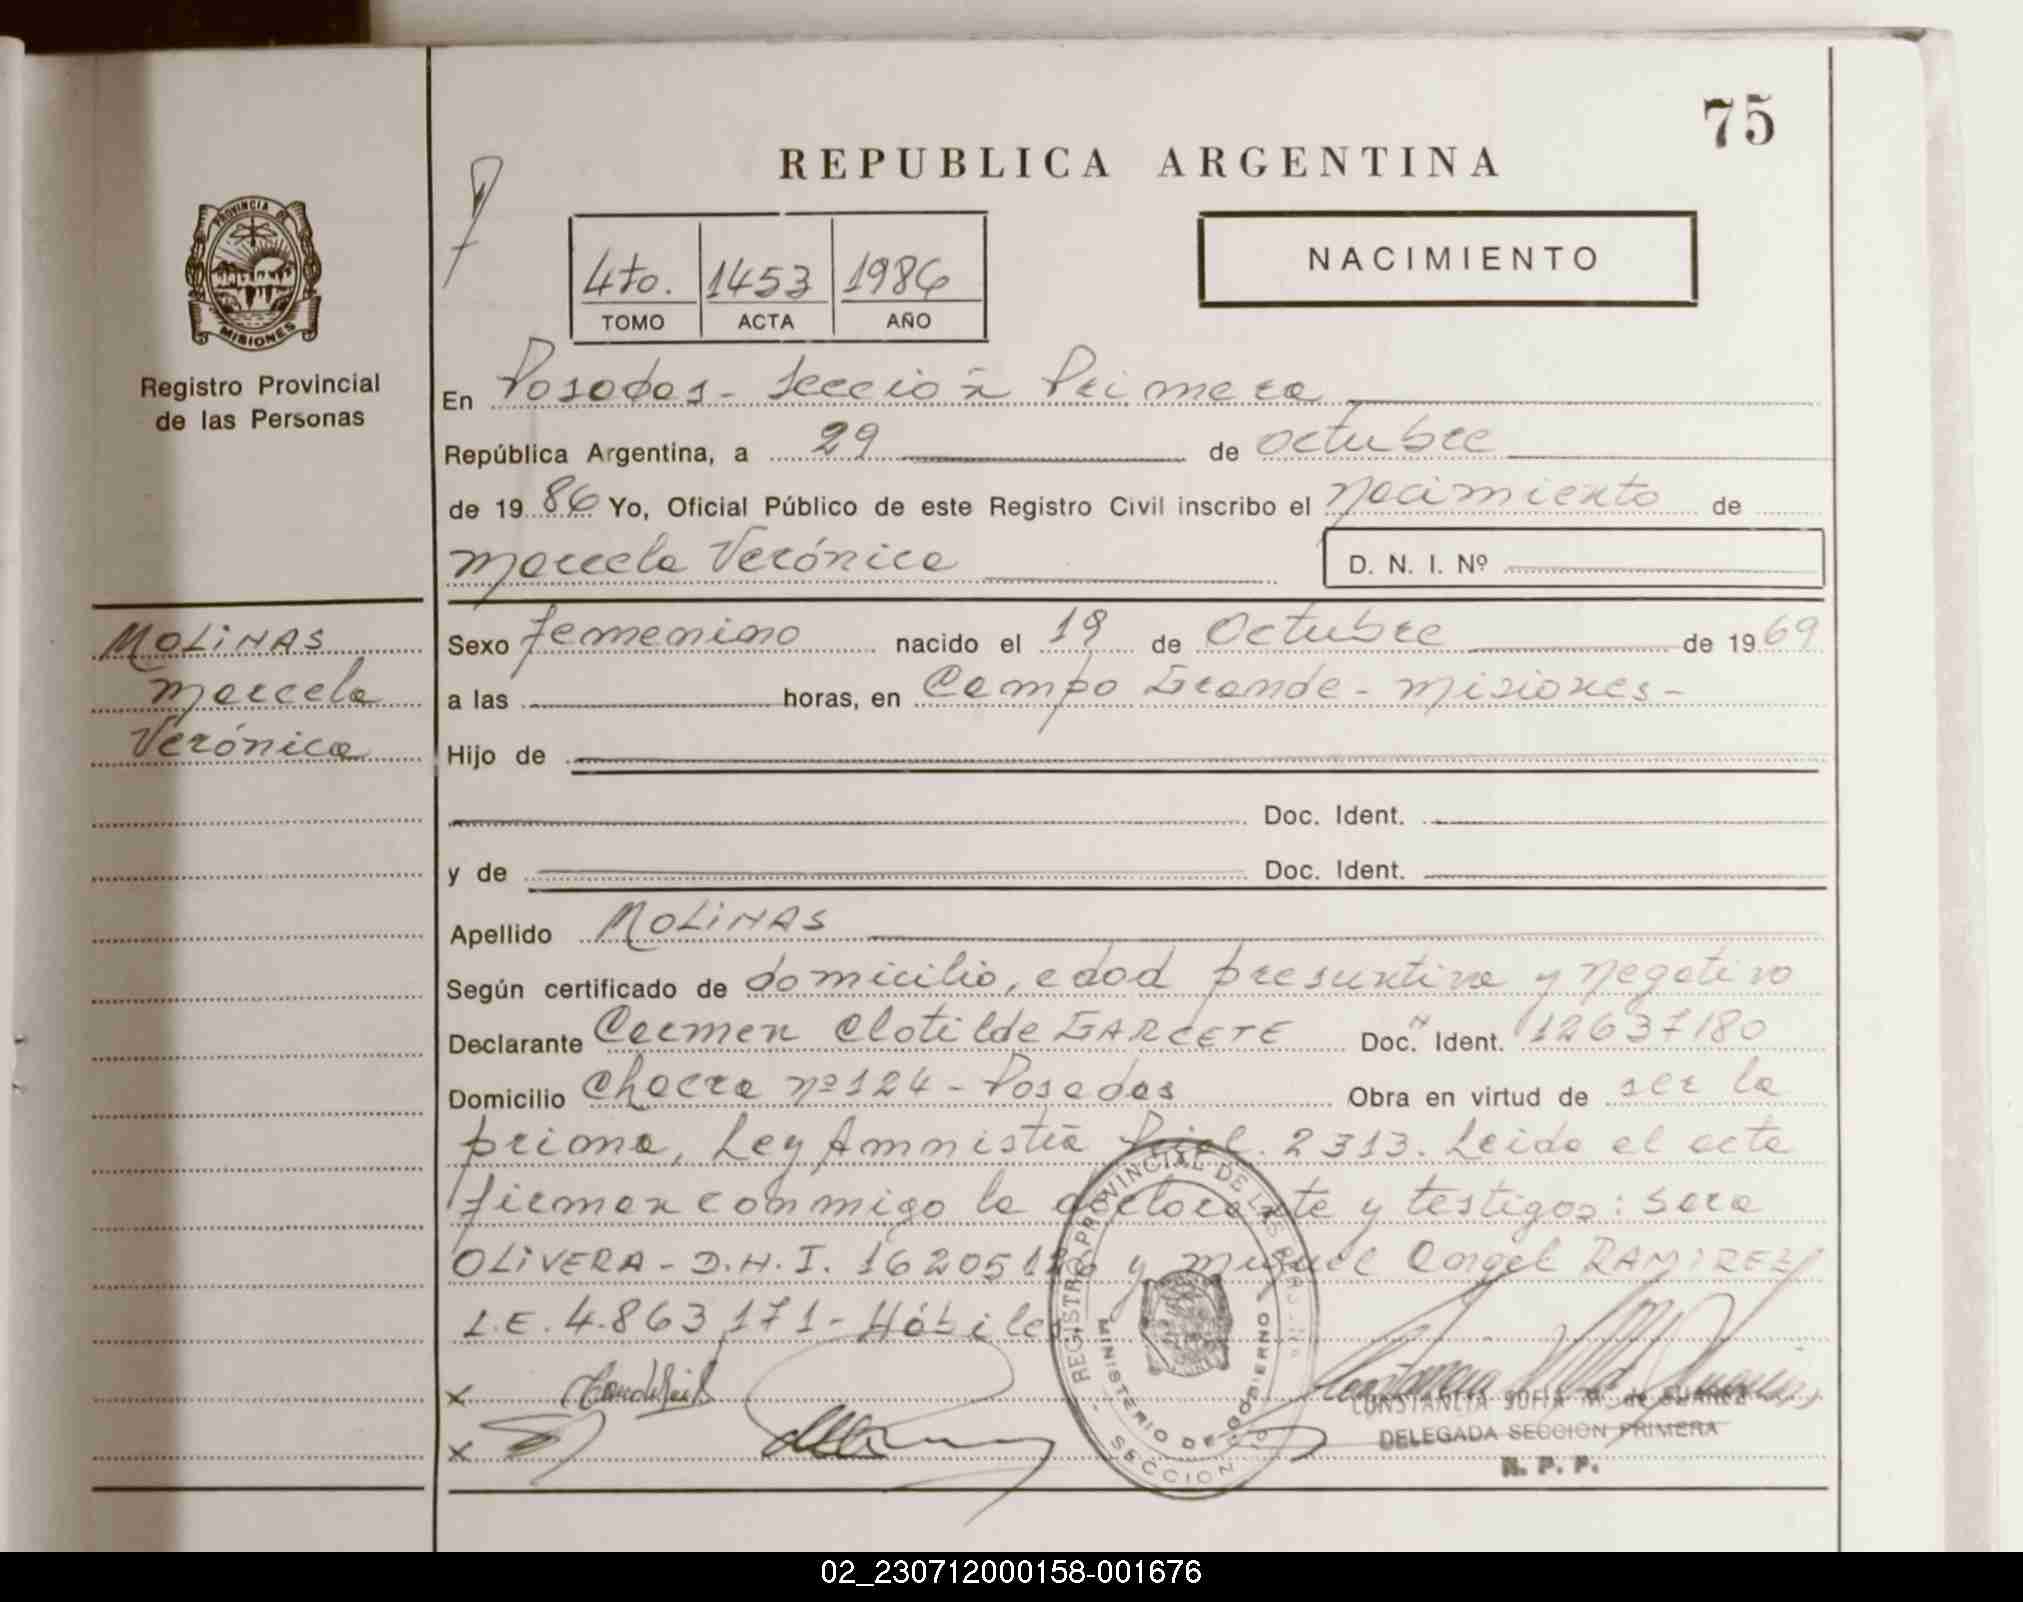 75
REPUBLICA ARGENTINA
PROVINCIA DE
MISIONES
Registro Provincial
de las Personas
4to. 1453 1986
TOMO ACTA AÑO
NACIMIENTO
En Posadas - Sección Primera
República Argentina, a 29 de octubre
de 19 86 Yo, Oficial Público de este Registro Civil inscribo el nacimiento de
Marcela Verónica
D. N. I. Nº
MOLINAS
Marcela
Verónica
Sexo femenino nacido el 19 de Octubre de 19 69
a las horas, en Campo Grande - Misiones -
Hijo de
Doc. Ident.
y de Doc. Ident.
Apellido MOLINAS
Según certificado de domicilio, edad presuntiva y negativo
Declarante Carmen Clotilde GARCETE Doc. Ident. 12637180
Domicilio Chacra nº 124 - Posadas Obra en virtud de ser la
prima, Ley Amnistía 2313. Leida el acta
firman conmigo la declarante y testigos: Sara
OLIVERA - D.N.I. 16205126 y Miguel Angel RAMIREZ
L.E. 4.863.171 - Hábiles
REGISTRO PROVINCIAL DE LAS PERSONAS
MINISTERIO DE GOBIERNO
SECCION
CONSTANCIA SOFIA M. de SUAREZ
DELEGADA SECCION PRIMERA
R. P. P.
02_230712000158-001676